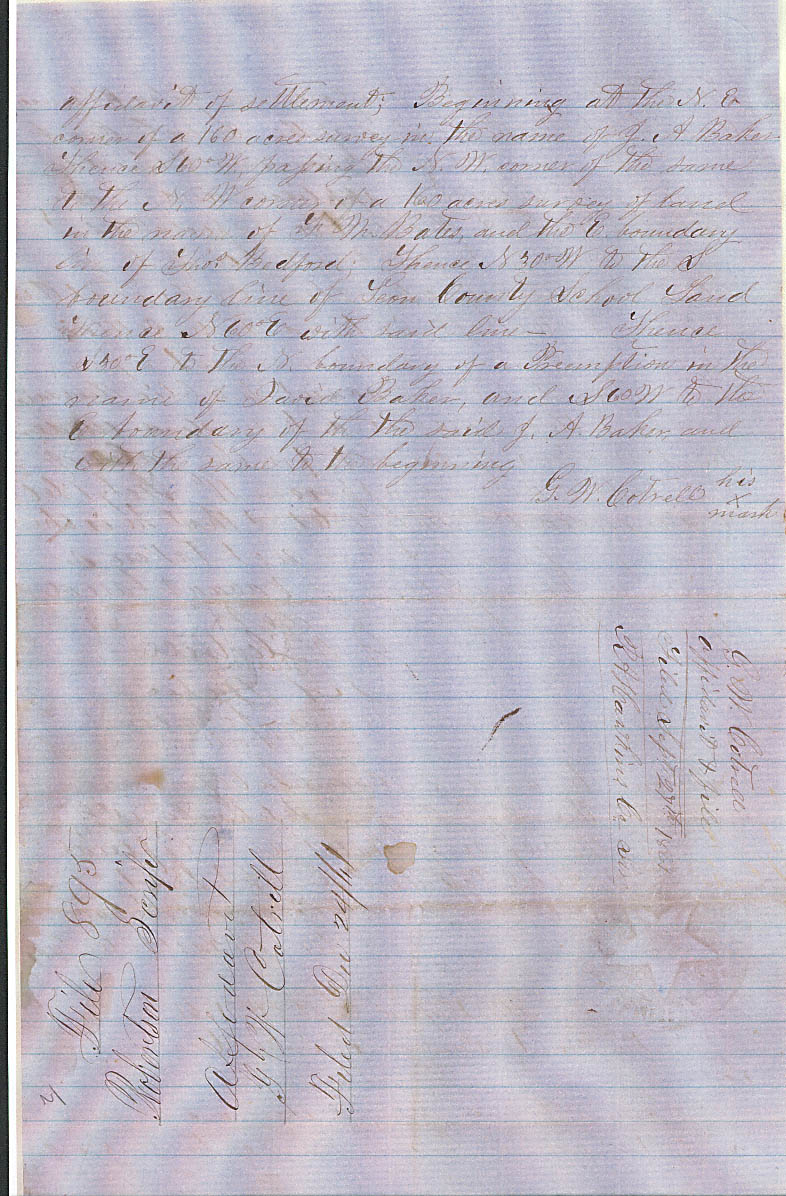 affidavit of settlement; Beginning at the N. E
corner of a 160 acres survey in the name of J. A Baker
Thence S 60° W, passing the N. W. corner of the same
to the N. W corner of a 160 acres survey of land
in the name of M. Bates, and the E boundary
line of Thos. Bedford; Thence N 30° W to the S
boundary line of Leon County School Land
Thence N 60° E with said line — Thence
S 30° E to the N. boundary of a Preemption in the
name of David Baker, and S 60 W to the
E boundary of th the said J. A. Baker and
with the same to the beginning
G. W. Cotrell his
x
mark
G. W. Cotrell
affidavit & field
Filed Sept 27th
Hawkins Co.
File 895
Robertson Script
Affadavit
G W Cotrell
Filed Dec 24/61